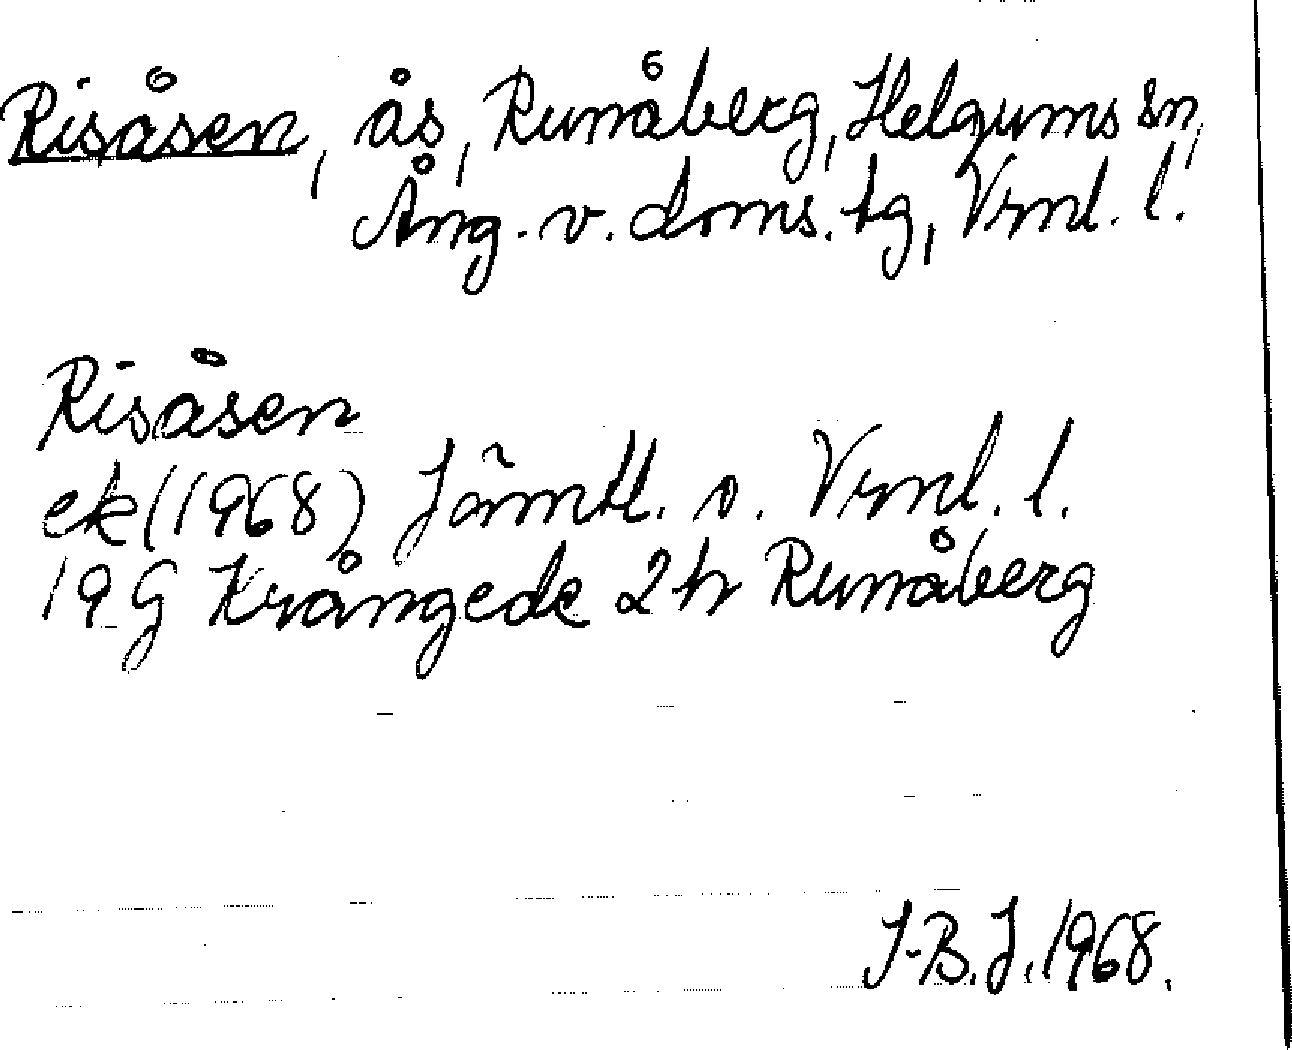 Risåsen, ås, Runåberg, Helgums sn,
Ång. v. doms. tg, Vrnl. l.
Risåsen
ek (1968) Jämtl. o. Vrnl. l.
19 G Krångede 2 h Runåberg
J-B.J. 1968.